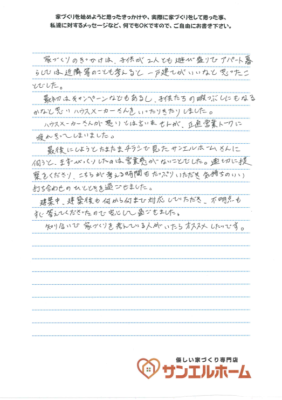 家づくりを始めようと思ったきっかけや、実際に家づくりをして思った事、
私達に対するメッセージなど、何でもOKですので、ご自由にお書き下さい。
家づくりのきっかけは、子供が2人とも遊び盛りでアパート暮
らしでは近隣等のことも考えると一戸建てがいいなと思ったこ
とでした。
最初はキャンペーンなどもあるし、子供たちの暇つぶしにもなる
かなと思いハウスメーカーさんをいったりきたりしました。
ハウスメーカーさんが悪いとは言いませんが、正直営業トークに
疲れきってしまいました。
最後にしようとたまたまチラシで見たサンエルホームさんに
伺うと、まずびっくりしたのは営業色がないことでした。適切に提
案をくださり、こちらが考える時間もたっぷりいただき気持ちのいい
打ち合わせのひとときを過ごせました。
建築中、建築後も何から何まで対応していただき、不明点も
すぐ答えてくださったので安心して過ごせました。
知り合いで家づくりを考えている人がいたらオススメしたいです。
優しい家づくり専門店
サンエルホーム